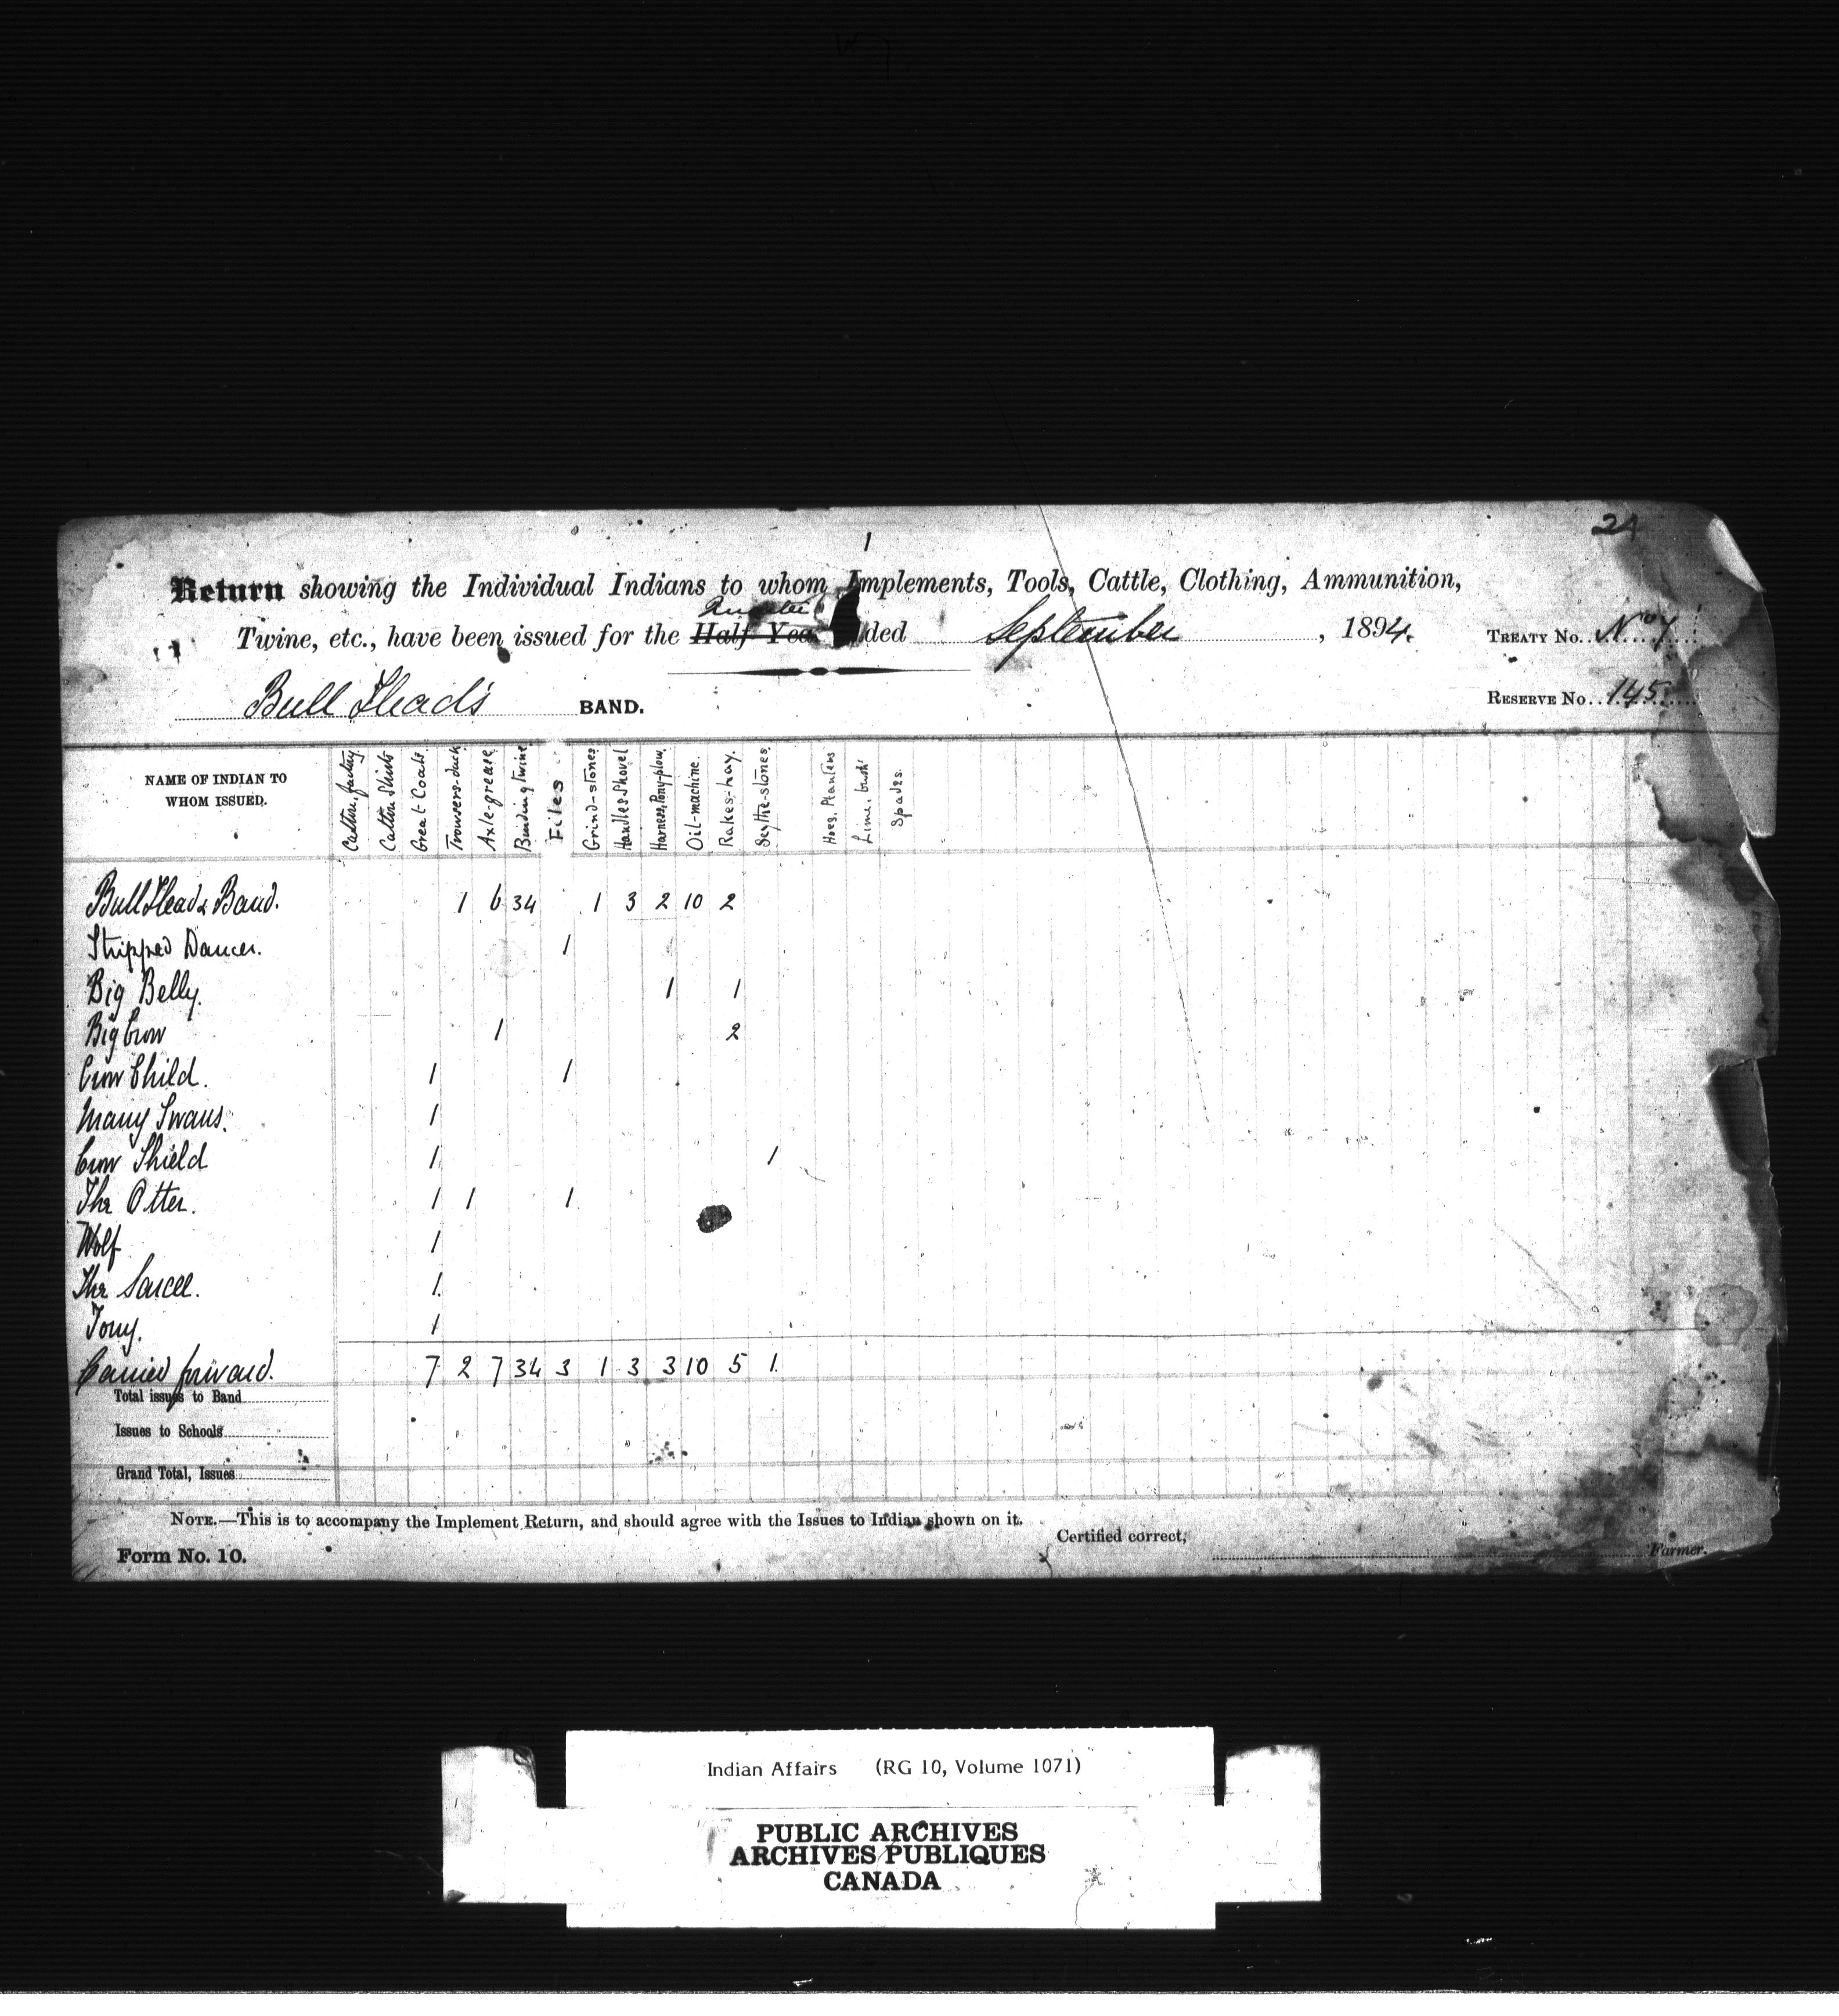 24
1
Return showing the Individual Indians to whom Implements, Tools, Cattle, Clothing, Ammunition,
Quarter
Twine, etc., have been issued for the Half Year ded September, 1894. TREATY No. No 7
Bull Head's BAND. RESERVE No. 145
NAME OF INDIAN TO WHOM ISSUED. Cotton, factory Cotton Shirts Great Coats Trowsers-duck Axle-grease Binding twine Files Grind-stones Handles Shovel Harness, Pony-plow. Oil-machine. Rakes-hay. Scythe-stones Hoes, Planters Lime, bush: Spades.
Bull Head & Band. 1 6 34 1 3 2 10 2
Stripped Dancer. 1
Big Belly. 1 1
Big Crow 1 2
Crow Child. 1 1
Many Swans. 1
Crow Shield 1 1
The Otter. 1 1 1
Wolf 1
The Sarcee. 1
Tony. 1
Carried forward. 7 2 7 34 3 1 3 3 10 5 1
Total issues to Band
Issues to Schools
Grand Total, Issues
NOTE.—This is to accompany the Implement Return, and should agree with the Issues to Indian shown on it.
Certified correct,
Form No. 10. Farmer.
Indian Affairs (RG 10, Volume 1071)
PUBLIC ARCHIVES
ARCHIVES PUBLIQUES
CANADA